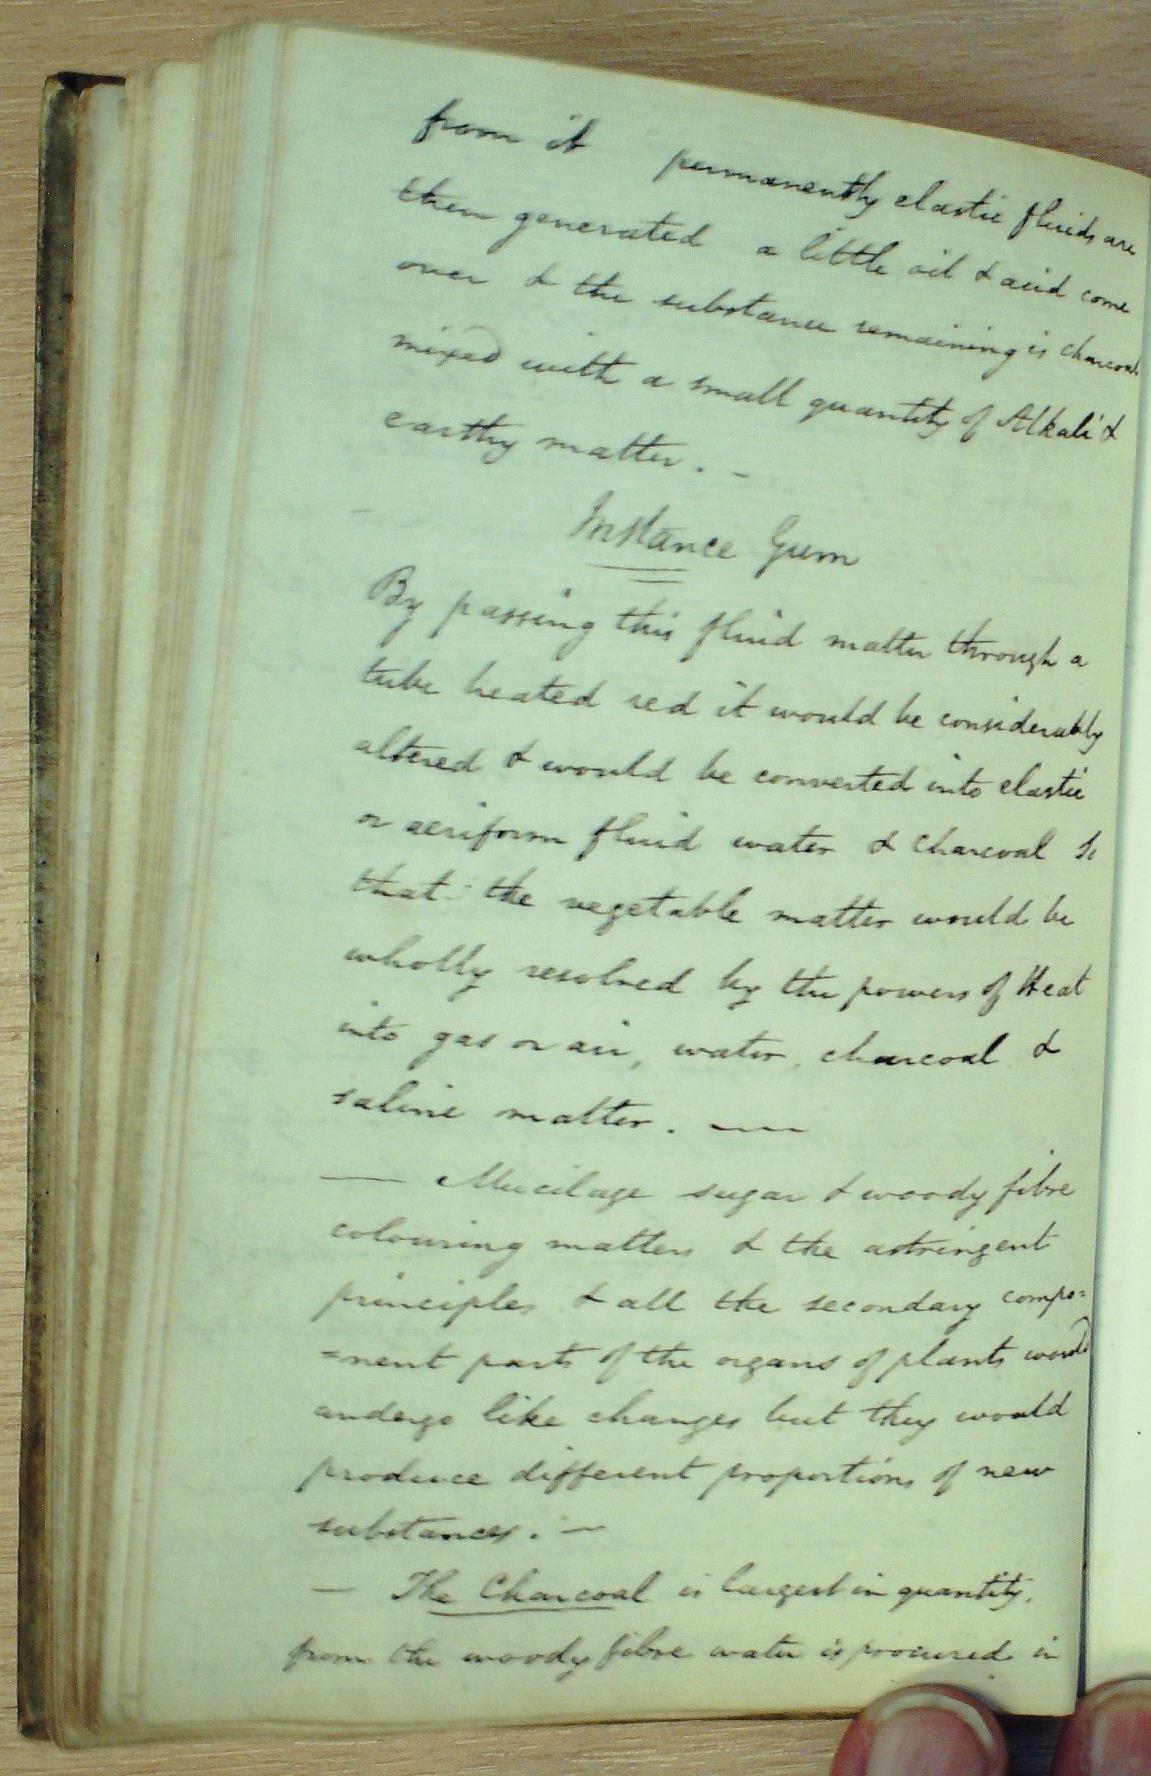 from it permanently elastic fluids are
then generated a little oil & acid come
over & the substance remaining is charcoal
mixed with a small quantity of Alkali &
earthy matter. –
Instance Gum
By passing this fluid matter through a
tube heated red it would be considerably
altered & would be converted into elastic
or aeriform fluid water & charcoal so
that the vegetable matter would be
wholly resolved by the powers of Heat
into gas or air, water, charcoal &
saline matter. —
— Mucilage sugar & woody fibre
colouring matters & the astringent
principles & all the secondary compo=
=nent parts of the organs of plants would
undergo like changes but they would
produce different proportions of new
substances. —
— The Charcoal is largest in quantity.
from the woody fibre water is procured in